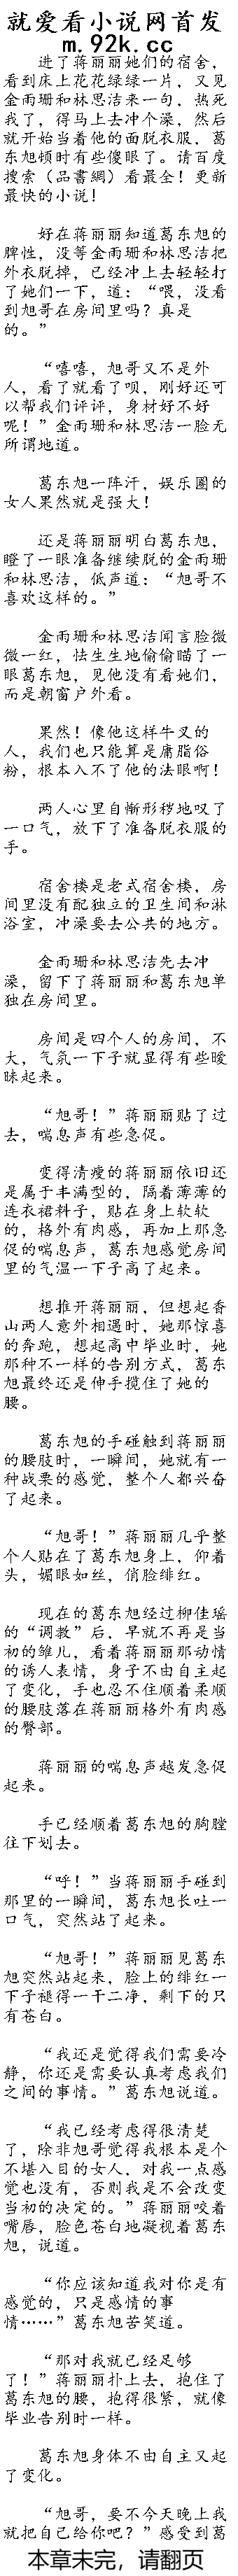 就爱看小说网首发
m.92k.cc
进了蒋丽丽她们的宿舍，
看到床上花花绿绿一片，又见
金雨珊和林思洁来一句，热死
我了，得马上去冲个澡，然后
就开始当着他的面脱衣服，葛
东旭顿时有些傻眼了。请百度
搜索（品書網）看最全！更新
最快的小说！
好在蒋丽丽知道葛东旭的
脾性，没等金雨珊和林思洁把
外衣脱掉，已经冲上去轻轻打
了她们一下，道：“喂，没看
到旭哥在房间里吗？真是
的。”
“嘻嘻，旭哥又不是外
人，看了就看了呗，刚好还可
以帮我们评评，身材好不好
呢！”金雨珊和林思洁一脸无
所谓地道。
葛东旭一阵汗，娱乐圈的
女人果然就是强大！
还是蒋丽丽明白葛东旭，
瞪了一眼准备继续脱的金雨珊
和林思洁，低声道：“旭哥不
喜欢这样的。”
金雨珊和林思洁闻言脸微
微一红，怯生生地偷偷瞄了一
眼葛东旭，见他没有看她们，
而是朝窗户外看。
果然！像他这样牛叉的
人，我们也只能算是庸脂俗
粉，根本入不了他的法眼啊！
两人心里自惭形秽地叹了
一口气，放下了准备脱衣服的
手。
宿舍楼是老式宿舍楼，房
间里没有配独立的卫生间和淋
浴室，冲澡要去公共的地方。
金雨珊和林思洁先去冲
澡，留下了蒋丽丽和葛东旭单
独在房间里。
房间是四个人的房间，不
大，气氛一下子就显得有些暧
昧起来。
“旭哥！”蒋丽丽贴了过
去，喘息声有些急促。
变得清瘦的蒋丽丽依旧还
是属于丰满型的，隔着薄薄的
连衣裙料子，贴在身上软软
的，格外有肉感，再加上那急
促的喘息声，葛东旭感觉房间
里的气温一下子高了起来。
想推开蒋丽丽，但想起香
山两人意外相遇时，她那惊喜
的奔跑，想起高中毕业时，她
那种不一样的告别方式，葛东
旭最终还是伸手揽住了她的
腰。
葛东旭的手碰触到蒋丽丽
的腰肢时，一瞬间，她就有一
种战栗的感觉，整个人都兴奋
了起来。
“旭哥！”蒋丽丽几乎整
个人贴在了葛东旭身上，仰着
头，媚眼如丝，俏脸绯红。
现在的葛东旭经过柳佳瑶
的“调教”后，早就不再是当
初的雏儿，看着蒋丽丽那动情
的诱人表情，身子不由自主起
了变化，手也忍不住顺着柔顺
的腰肢落在蒋丽丽格外有肉感
的臀部。
蒋丽丽的喘息声越发急促
起来。
手已经顺着葛东旭的胸膛
往下划去。
“呼！”当蒋丽丽手碰到
那里的一瞬间，葛东旭长吐一
口气，突然站了起来。
“旭哥！”蒋丽丽见葛东
旭突然站起来，脸上的绯红一
下子褪得一干二净，剩下的只
有苍白。
“我还是觉得我们需要冷
静，你还是需要认真考虑我们
之间的事情。”葛东旭说道。
“我已经考虑得很清楚
了，除非旭哥觉得我根本是个
不堪入目的女人，对我一点感
觉也没有，否则我是不会改变
当初的决定的。”蒋丽丽咬着
嘴唇，脸色苍白地凝视着葛东
旭，说道。
“你应该知道我对你是有
感觉的，只是感情的事
情……”葛东旭苦笑道。
“那对我就已经足够
了！”蒋丽丽扑上去，抱住了
葛东旭的腰，抱得很紧，就像
毕业告别时一样。
葛东旭身体不由自主又起
了变化。
“旭哥，要不今天晚上我
就把自己给你吧？”感受到葛
本章未完，请翻页